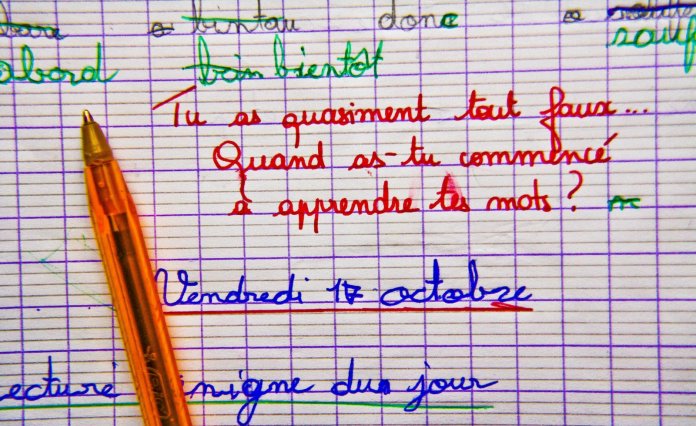 bintou donc
abord bientôt sauf
Tu as quasiment tout faux...
Quand as-tu commencé
à apprendre tes mots ?
Vendredi 17 octobre
ecture énigme du jour